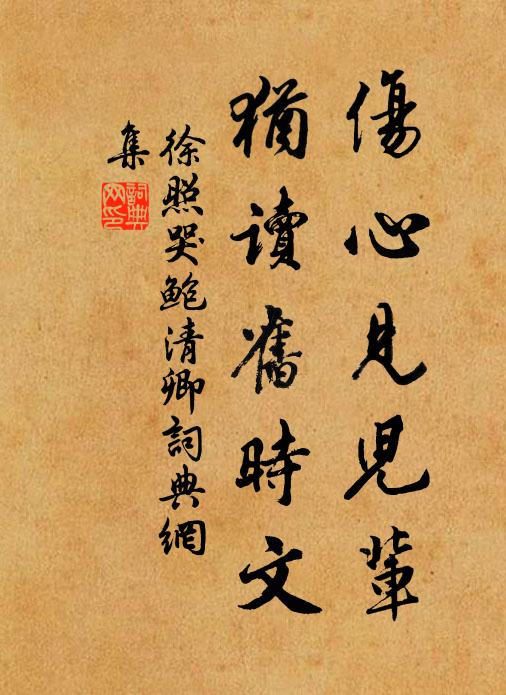 傷心見兒輩
猶讀舊時文
徐照哭鮑清卿詞典網
集
詞典
网印